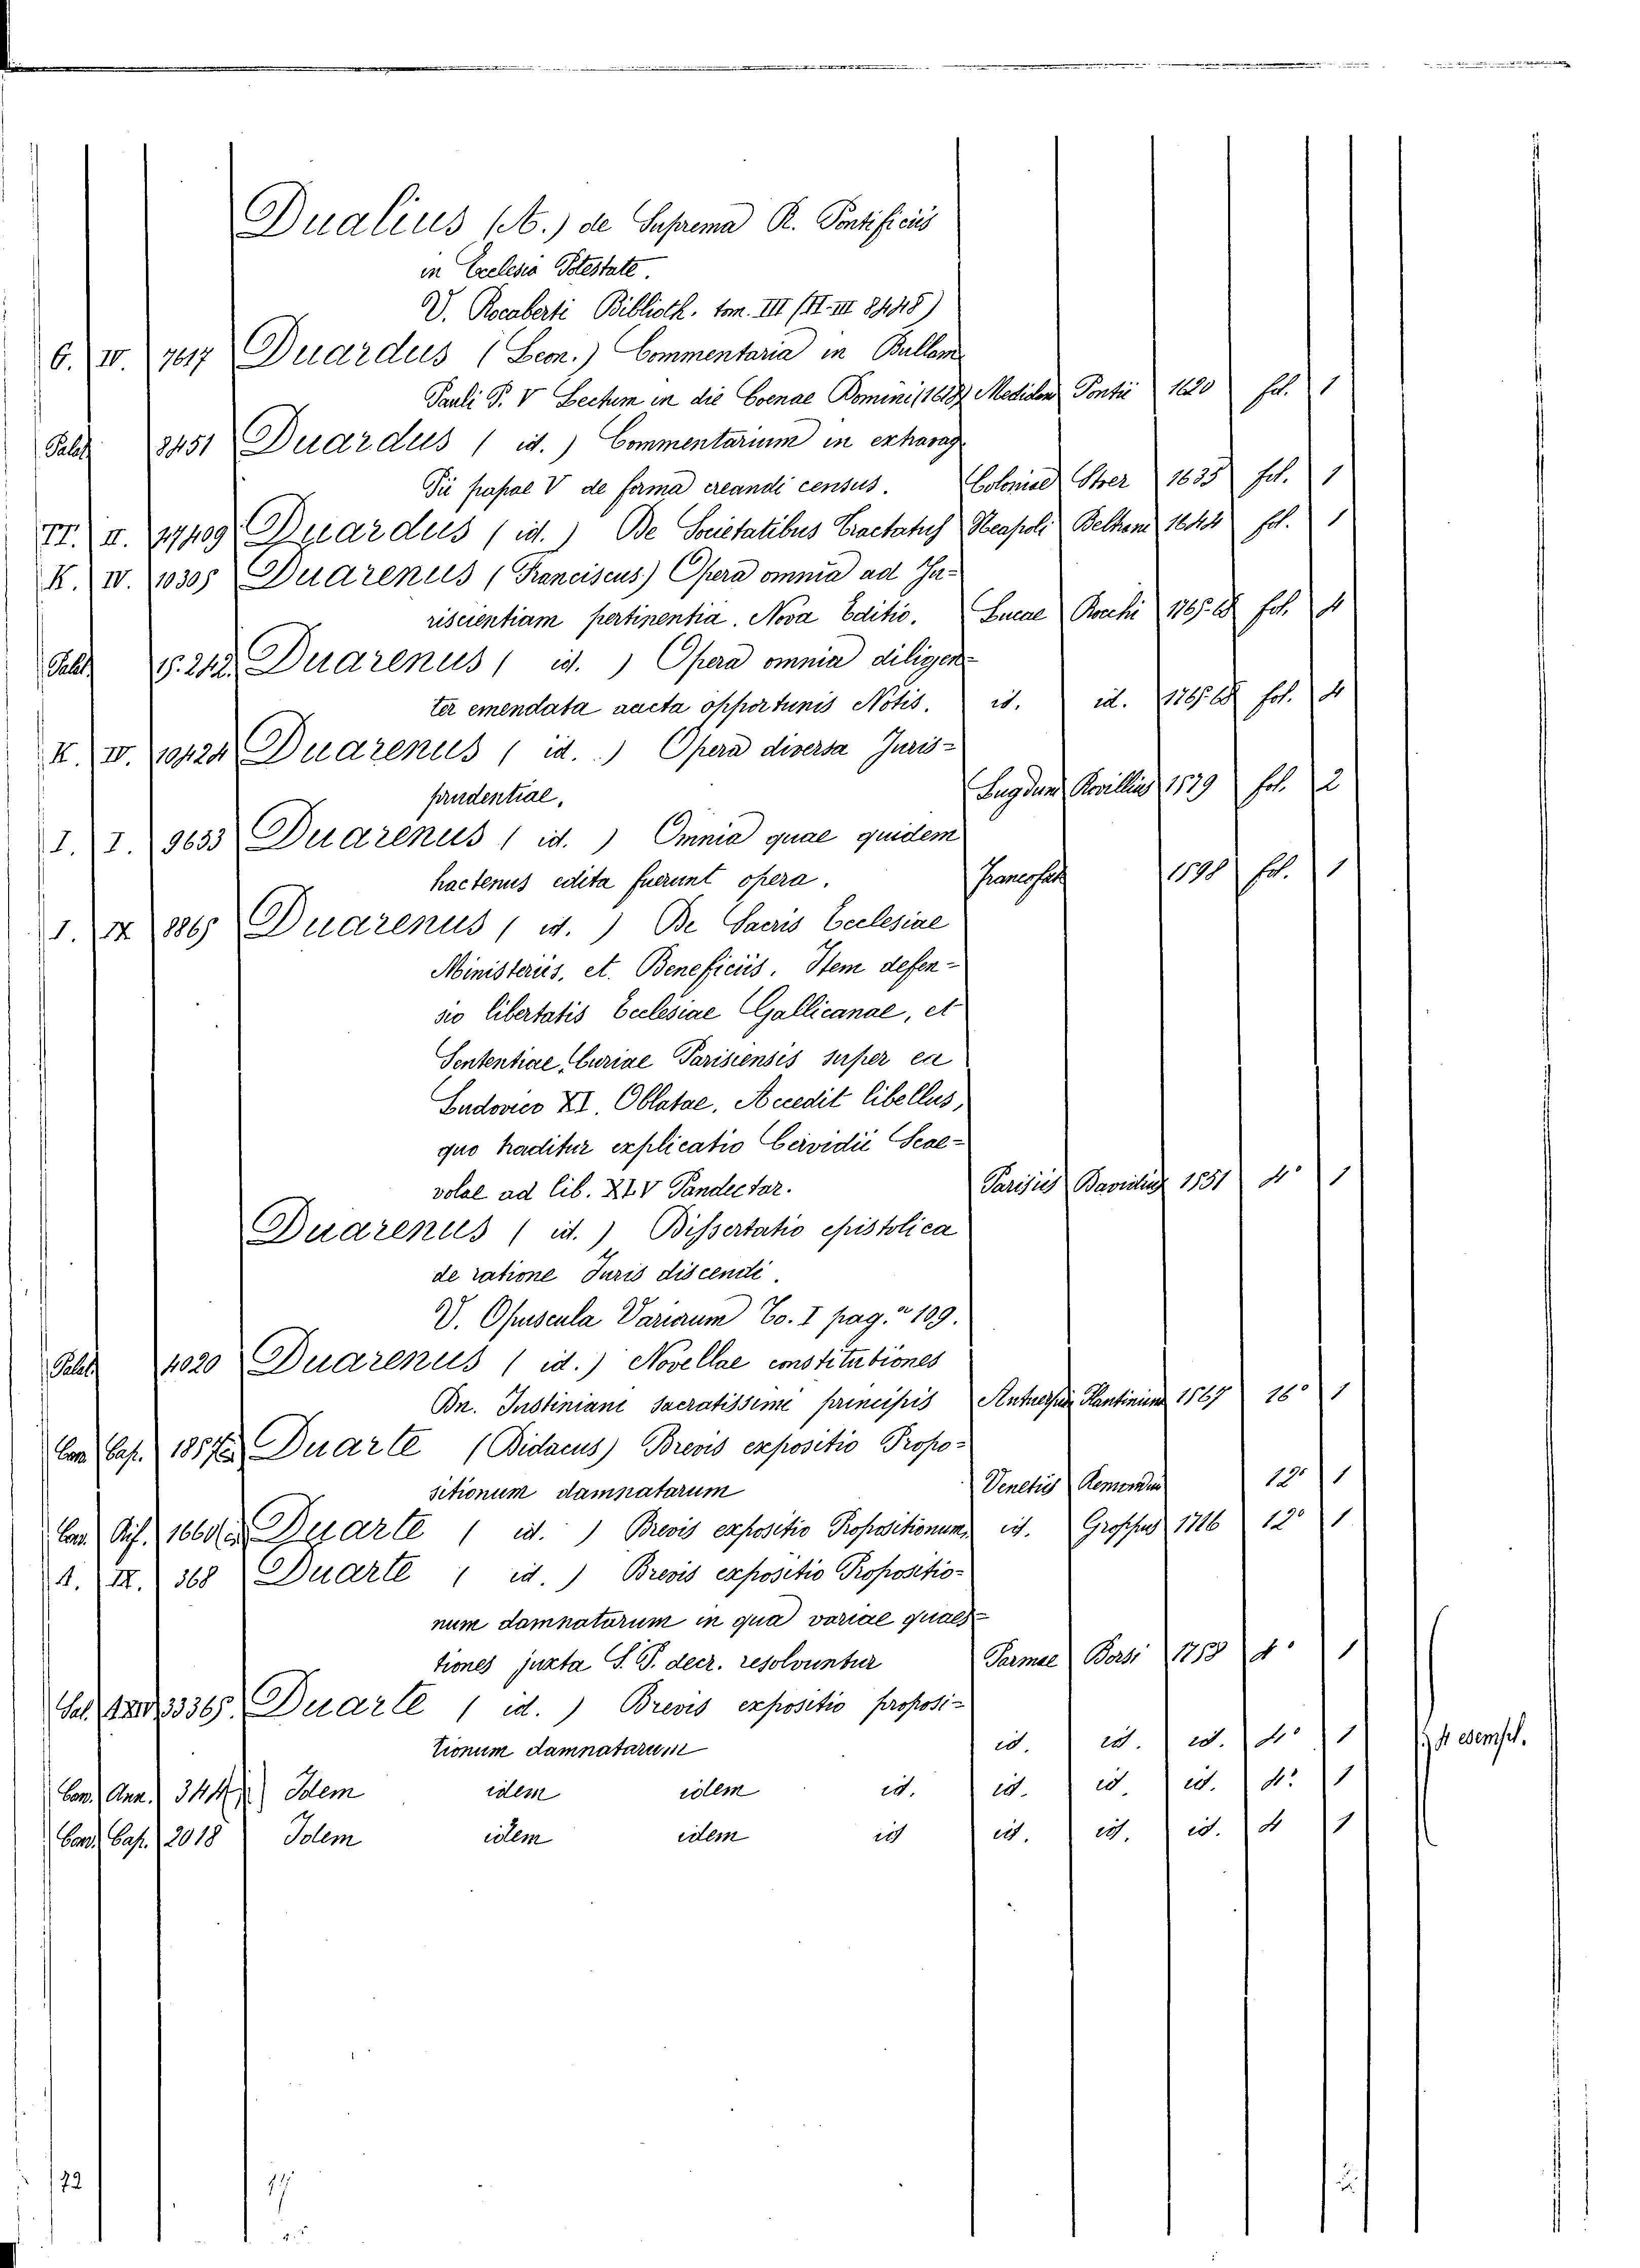 Dualius (A.) de Suprema R. Pontificis
in Ecclesia Potestate.
V. Rocaberti Biblioth. tom. III (H. III 8448)
G. IV. 7617 Duardus (Leon.) Commentaria in Bullam
Pauli P. V Lectum in die Coenae Domini 1618 Mediolan Pontii 1620 fol. 1
Palat 3451 Duardus (id.) Commentarium in extravag
Pii papae V de forma creandi census. Coloniae Stver 1635 fol. 1
TT. II. 27409 Duardus (id.) De Societatibus Tractatus Neapoli Beltran 1644 fol. 1
K. IV. 10305 Duarenus (Franciscus) Opera omnia ad Ju-
riscientiam pertinentia. Nova Editio. Lucae Rocchi 1765.68 fol. 4
Palat 15.242. Duarenus (id.) Opera omnia diligen-
ter emendata aucta opportunis Notis. id. id. 1765.68 fol. 4
K. IV. 10424 Duarenus (id.) Opera diversa Juris-
prudentiae. Lugdun Rovillius 1579 fol. 2
I. I. 9633 Duarenus (id.) Omnia quae quidem
hactenus edita fuerunt opera. Francofurt 1598 fol. 1
I. IX 8865 Duarenus (id.) De Sacris Ecclesiae
Ministeriis, et. Beneficiis. Item defen-
sio libertatis Ecclesiae Gallicanae, et
Sententiae, Curiae Parisiensis super ea
Ludovico XI. Oblatae. Accedit libellus,
quo traditur explicatio Cervidii Scae-
volae ad lib. XLV Pandectar. Parisiis Davidius 1551 4° 1
Duarenus (id.) Dissertatio epistolica
de ratione Juris discendi.
V. Opuscula Variorum To. I pag.a 109.
Palat 4020 Duarenus (id.) Novellae constitutiones
Dn. Justiniani sacratissimi principis Antuerpiae Plantinium 1567 16° 1
Can Cap. 1857 Duarte (Didacus) Brevis expositio Propo-
sitionum damnatarum Venetiis Remondin 12° 1
Can. Rif. 1660 Duarte (id.) Brevis expositio Propositionum, id. Groppus 1716 12° 1
A. IX. 368 Duarte (id.) Brevis expositio Propositio-
num damnatarum in qua variae quaes-
tiones juxta S. P. decr. resolvuntur Parmae Borsi 1753 4° 1
Sal. 33365. Duarte (id.) Brevis expositio proposi-
tionum damnatarum id. id. id. 4° 1 4 esempl.
Can. Ann. 344 Idem idem idem id. id. id. id. 4° 1
Can. Cap. 2018 Idem idem idem id id. id. id. 4 1
72 17